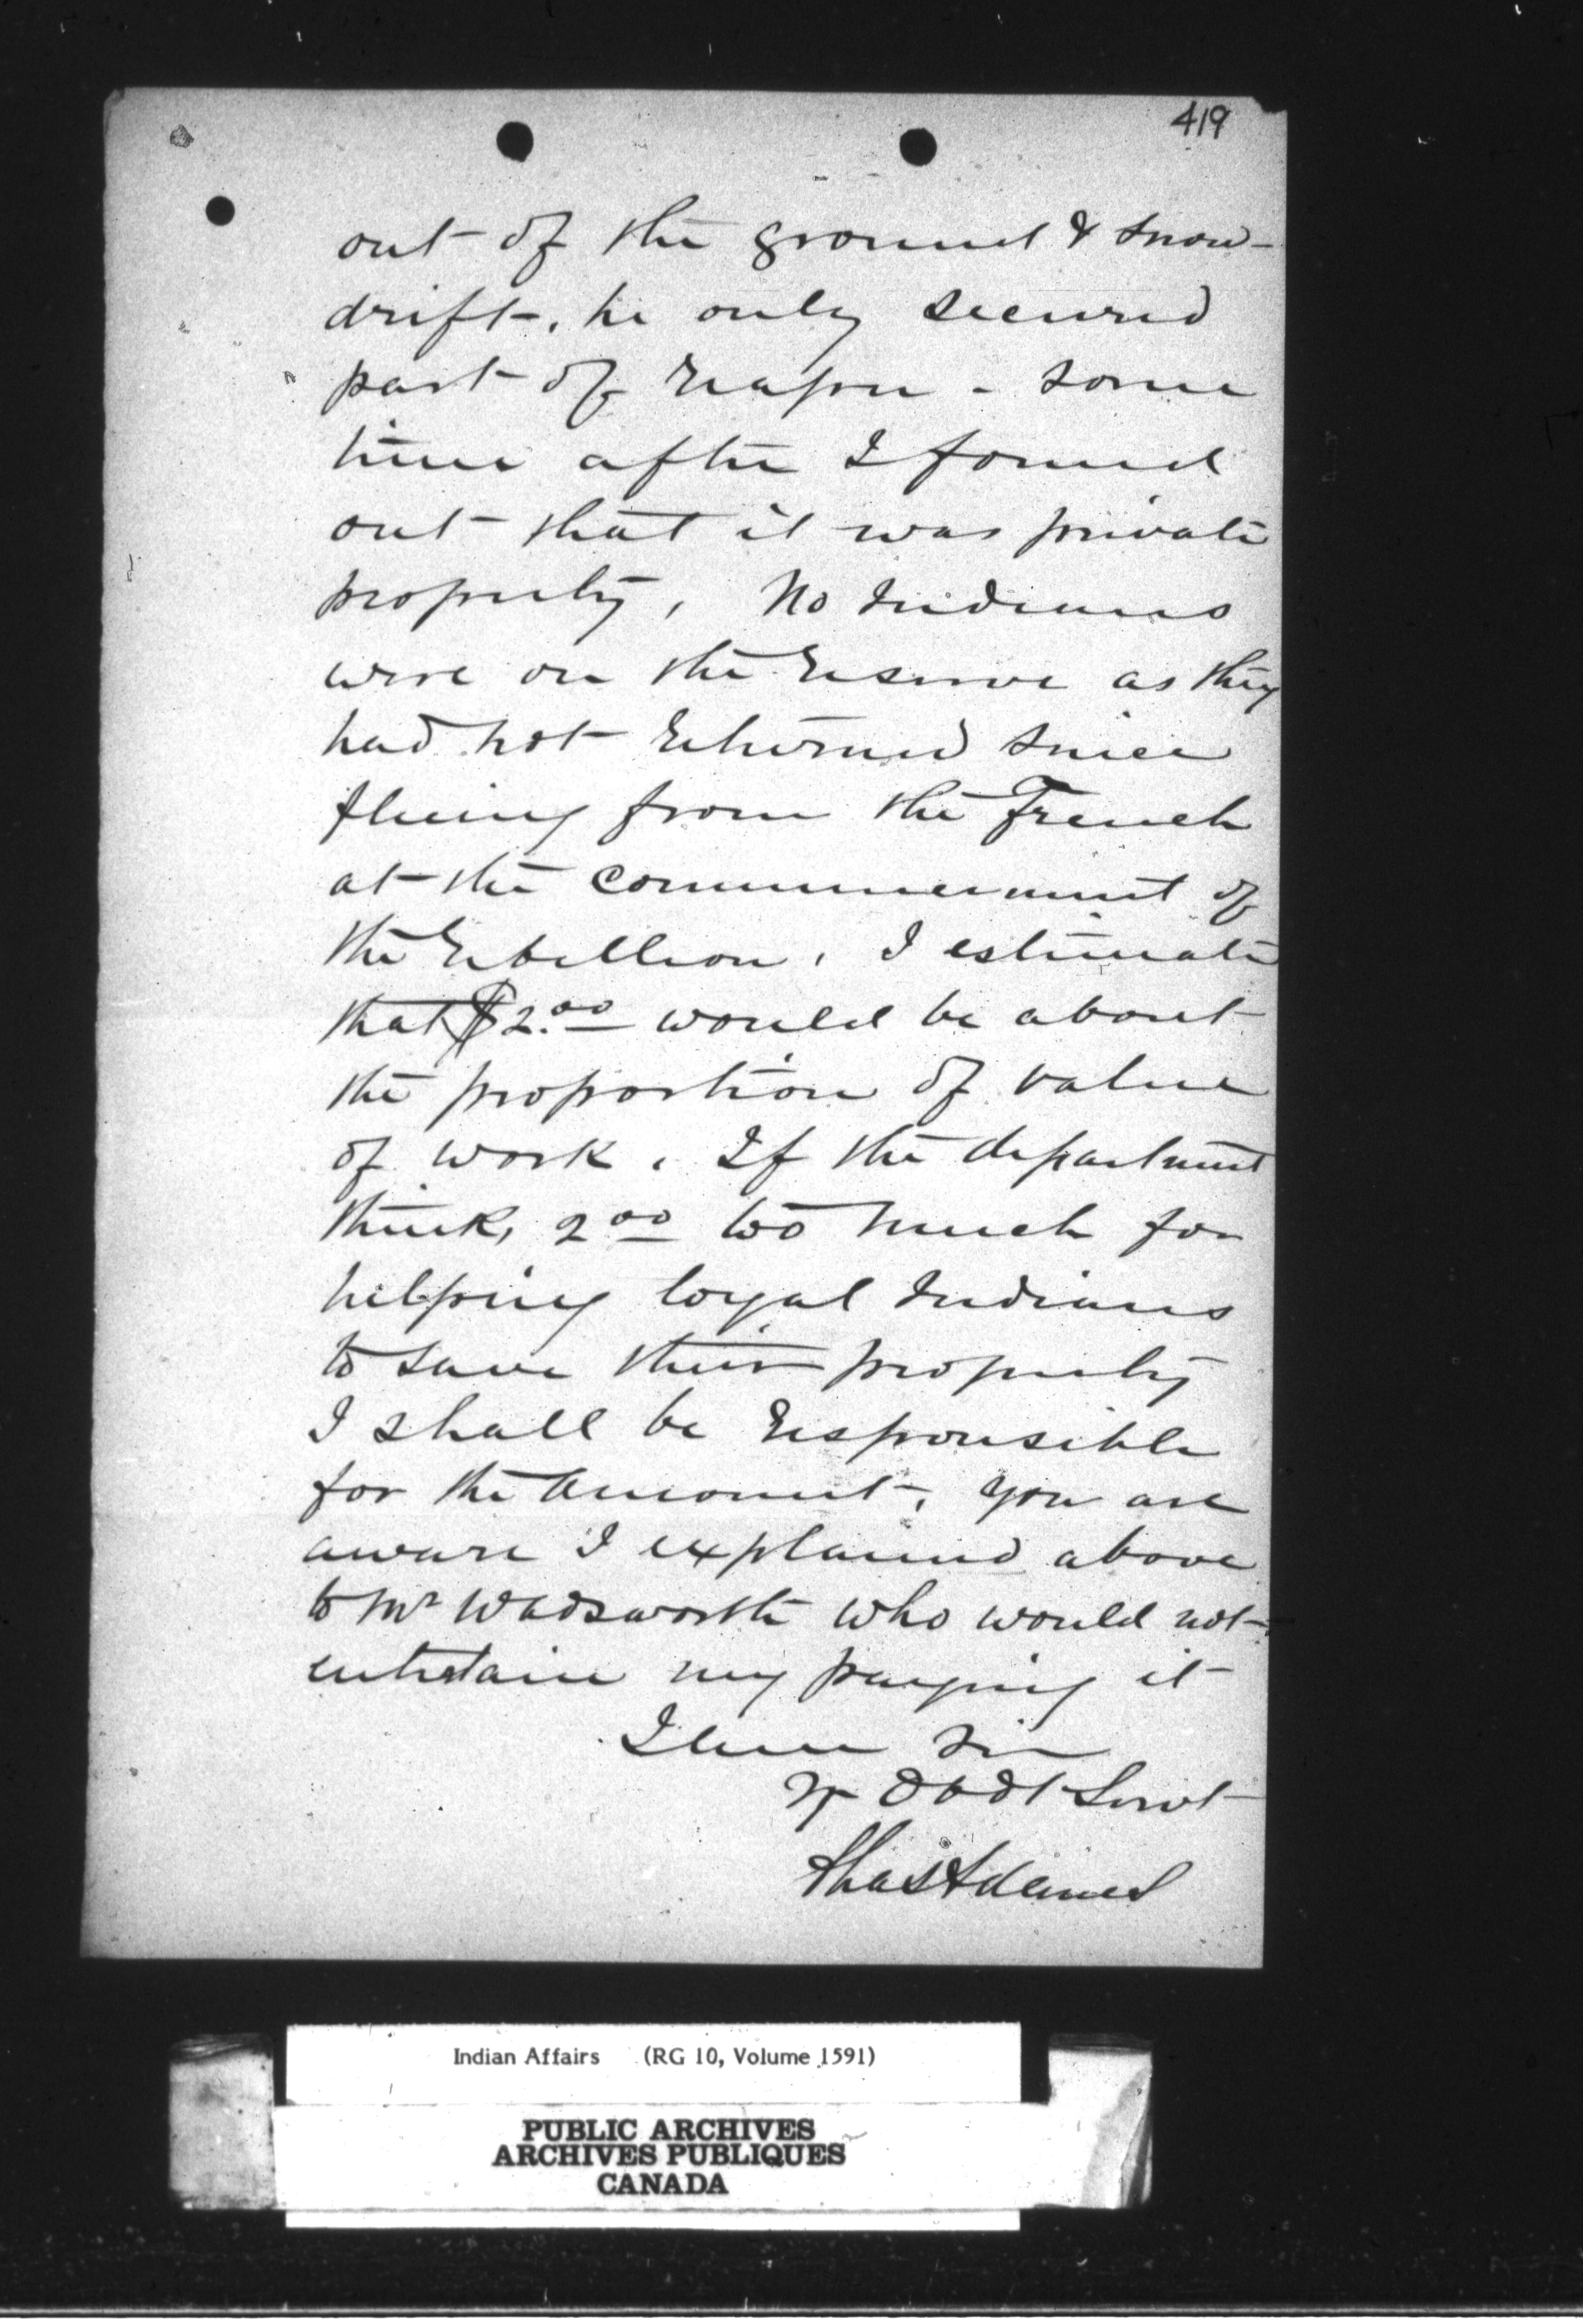 419
out of the ground & snow-
drift. he only secured
part of reaper - some
time after I found
out that it was private
property, No Indians
were on the reserve as they
had not returned since
fleeing from the French
at the commencement of
the rebellion. I estimate
that $2.00 would be about
the proportion of value
of work. If the department
think, 2 00 too much for
helping loyal Indians
to save their property
I shall be responsible
for the amount, you are
aware I explained above
to Mr Wadsworth who would not
entertain my paying it
I am Sir
Yr Obdt Servt
Chas Adams
Indian Affairs (RG 10, Volume 1591)
PUBLIC ARCHIVES
ARCHIVES PUBLIQUES
CANADA